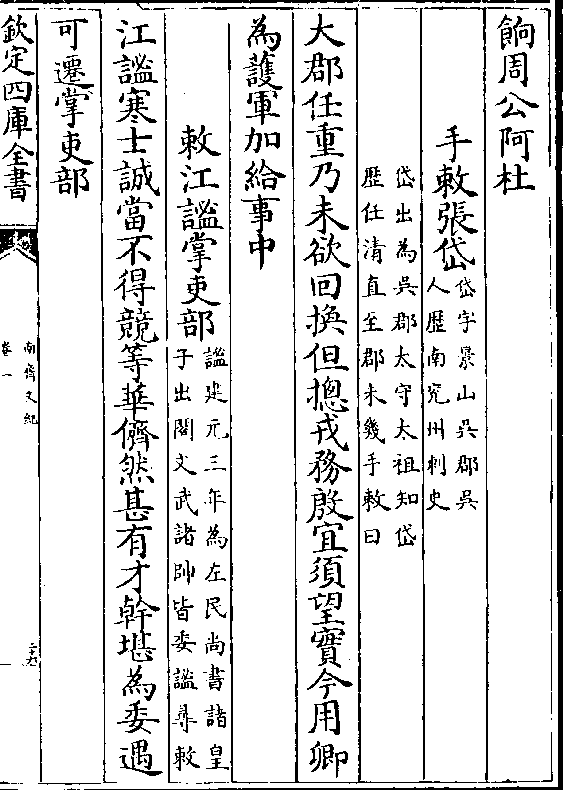 餉周公阿杜
手敕張岱岱字景山吳郡吳
人歴南兖州刺史
岱出為吳郡太守太祖知岱
歴任清直至郡未幾手敕曰
大郡任重乃未欲回換但摠戎務殷宜須望實今用卿
為護軍加給事中
敕江謐掌吏部謐建元三年為左民尚書諸皇
子出閤文武諸帥皆委謐尋敕
江謐寒士誠當不得競等華儕然甚有才幹堪為委遇
可遷掌吏部
欽定四庫全書
南齊文紀
卷一
二十九